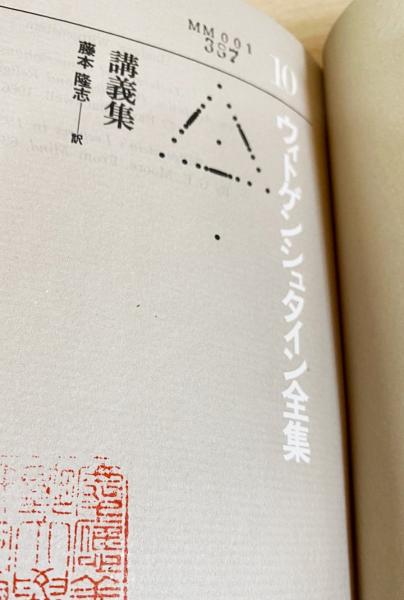 MM001
357
10
ウィトゲンシュタイン全集
講義集
藤本 隆志──訳